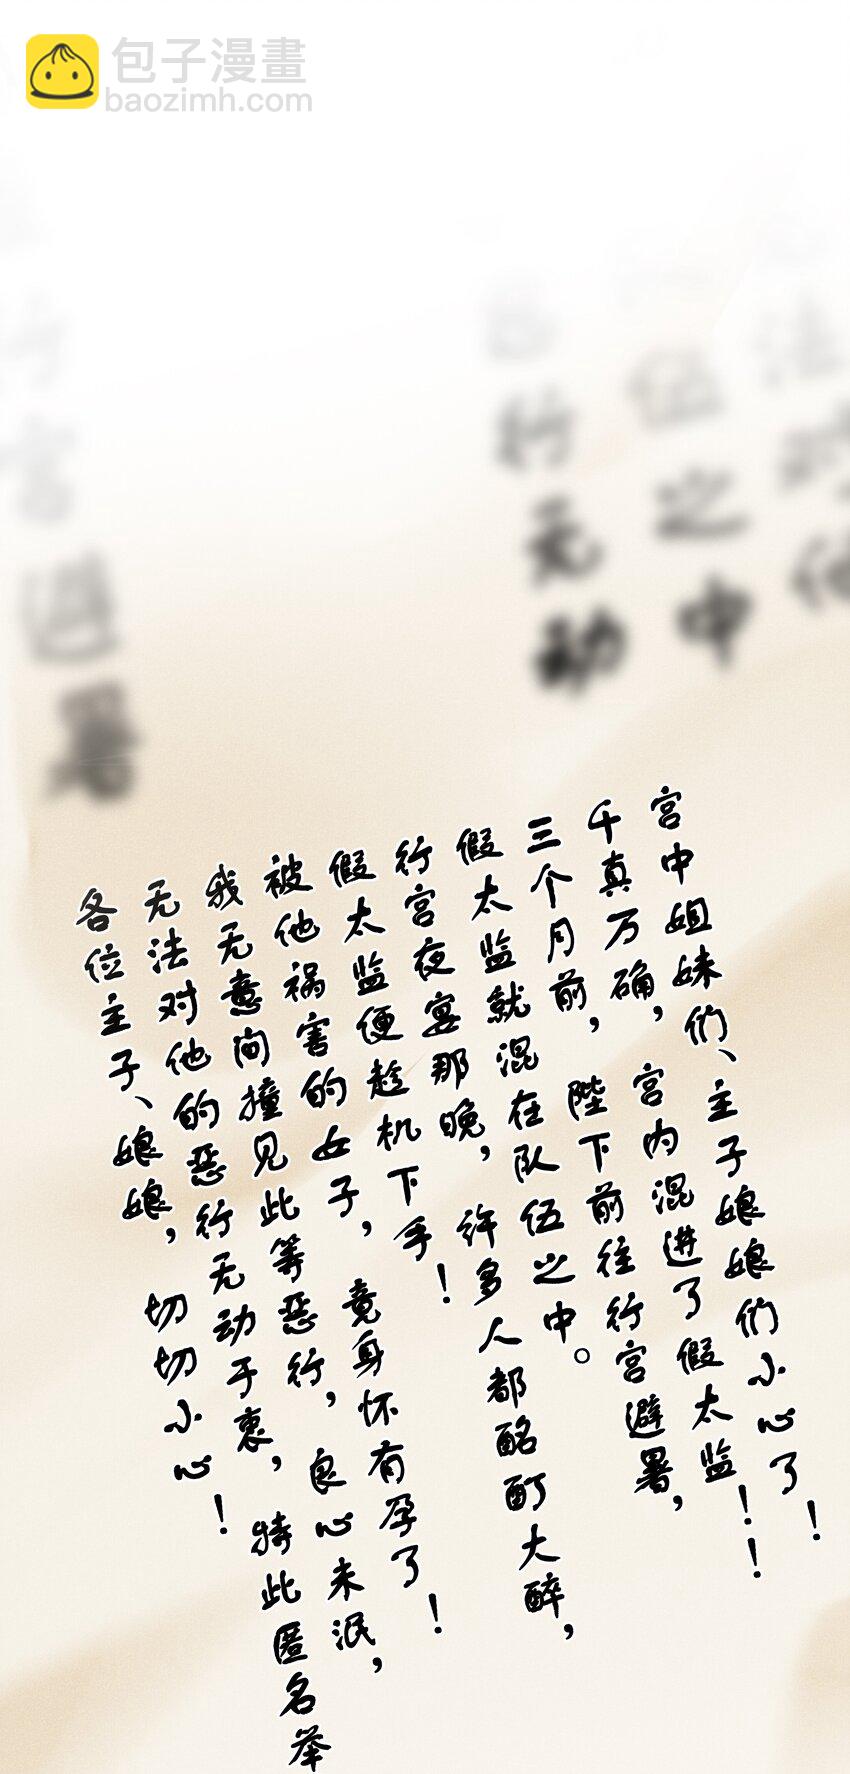 包子漫畫
baozimh.com
行宫避暑
行无动
伍之中
法对他
宫中姐妹们、主子娘娘们小心了！
千真万确，宫内混进了假太监！！
三个月前，陛下前往行宫避暑，
假太监就混在队伍之中。
行宫夜宴那晚，许多人都酩酊大醉，
假太监便趁机下手！
被他祸害的女子，竟身怀有孕了！
我无意间撞见此等恶行，良心未泯，
无法对他的恶行无动于衷，特此匿名举
各位主子、娘娘，切切小心！